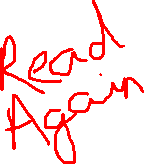 Read
Again